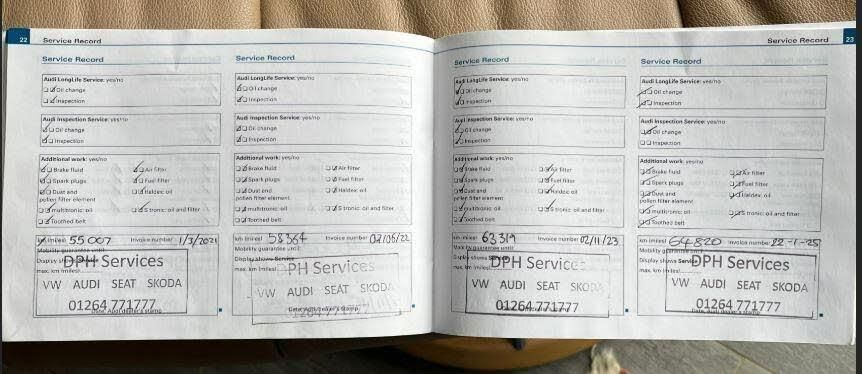 22 Service Record
Service Record
Audi LongLife Service: yes/no
Oil change
Inspection
Audi Inspection Service: yes/no
Oil change
Inspection
Additional work: yes/no
Brake fluid Air filter
Spark plugs Fuel filter
Dust and Haldex oil
pollen filter element
multitronic oil S tronic: oil and filter
Toothed belt
km (miles) 55007 Invoice number 1/3/2021
Mobility guarantee until:
Display shows
max. km (miles)
DPH Services
VW AUDI SEAT SKODA
01264 771777
Date, Audi dealer's stamp
Service Record
Audi LongLife Service: yes/no
Oil change
Inspection
Audi Inspection Service: yes/no
Oil change
Inspection
Additional work: yes/no
Brake fluid Air filter
Spark plugs Fuel filter
Dust and Haldex oil
pollen filter element
multitronic oil S tronic: oil and filter
Toothed belt
km (miles) 58364 Invoice number 02/06/22
Mobility guarantee until:
Display shows Service
max. km (miles)
DPH Services
VW AUDI SEAT SKODA
01264 771777
Date, Audi dealer's stamp
Service Record 23
Service Record
Audi LongLife Service: yes/no
Oil change
Inspection
Audi Inspection Service: yes/no
Oil change
Inspection
Additional work: yes/no
Brake fluid Air filter
Spark plugs Fuel filter
Dust and Haldex oil
pollen filter element
multitronic: oil S tronic: oil and filter
Toothed belt
km (miles) 63319 Invoice number 02/11/23
Mobility guarantee until:
Display shows
max. km (miles)
DPH Services
VW AUDI SEAT SKODA
01264 771777
Service Record
Audi LongLife Service: yes/no
Oil change
Inspection
Audi Inspection Service: yes/no
Oil change
Inspection
Additional work: yes/no
Brake fluid Air filter
Spark plugs Fuel filter
Dust and Haldex oil
pollen filter element
multitronic: oil S tronic: oil and filter
Toothed belt
km (miles) 64820 Invoice number 22-1-25
Mobility guarantee until:
Display shows Service
max. km (miles)
DPH Services
VW AUDI SEAT SKODA
01264 771777
Date, Audi dealer's stamp